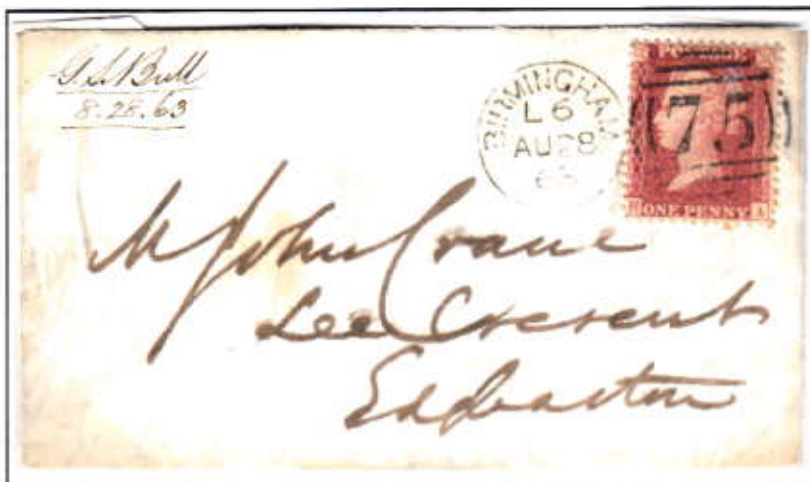 G.S. Bull
8.28.63
BIRMINGHAM
L 6
AU 28
63
POSTAGE
75
ONE PENNY
A
Mr John Crane
Lee Crescent
Edgbaston